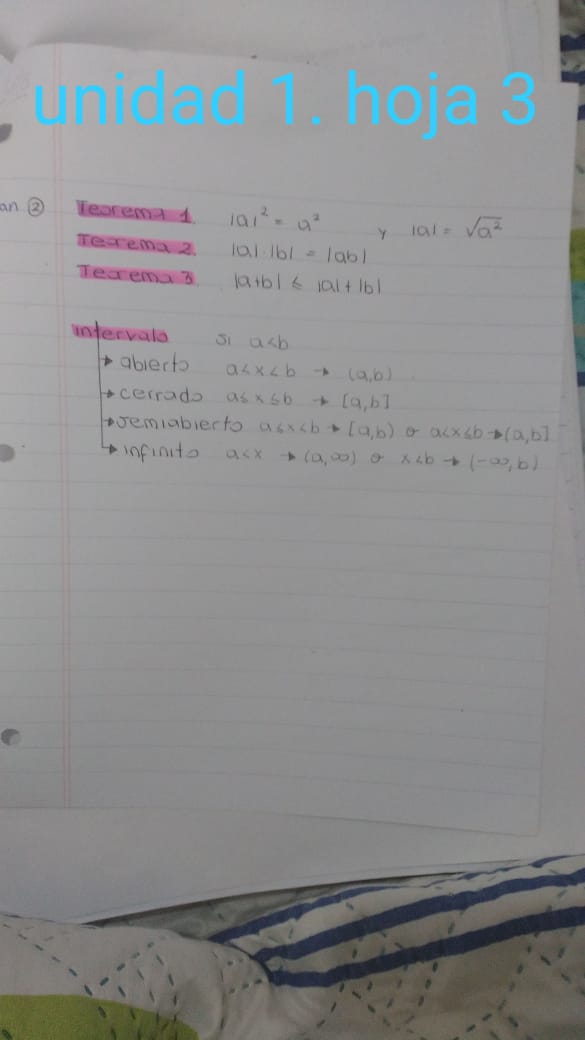 unidad 1. hoja 3
an ② Teorema 1. |a|² = a² y |a| = √a²
Teorema 2. |a|·|b| = |ab|
Teorema 3. |a+b| ≤ |a|+|b|
intervalo si a<b
→ abierto a<x<b → (a,b)
→ cerrado a≤x≤b → [a,b]
→ semiabierto a≤x<b → [a,b) o a<x≤b → (a,b]
→ infinito a<x → (a,∞) o x<b → (-∞,b)